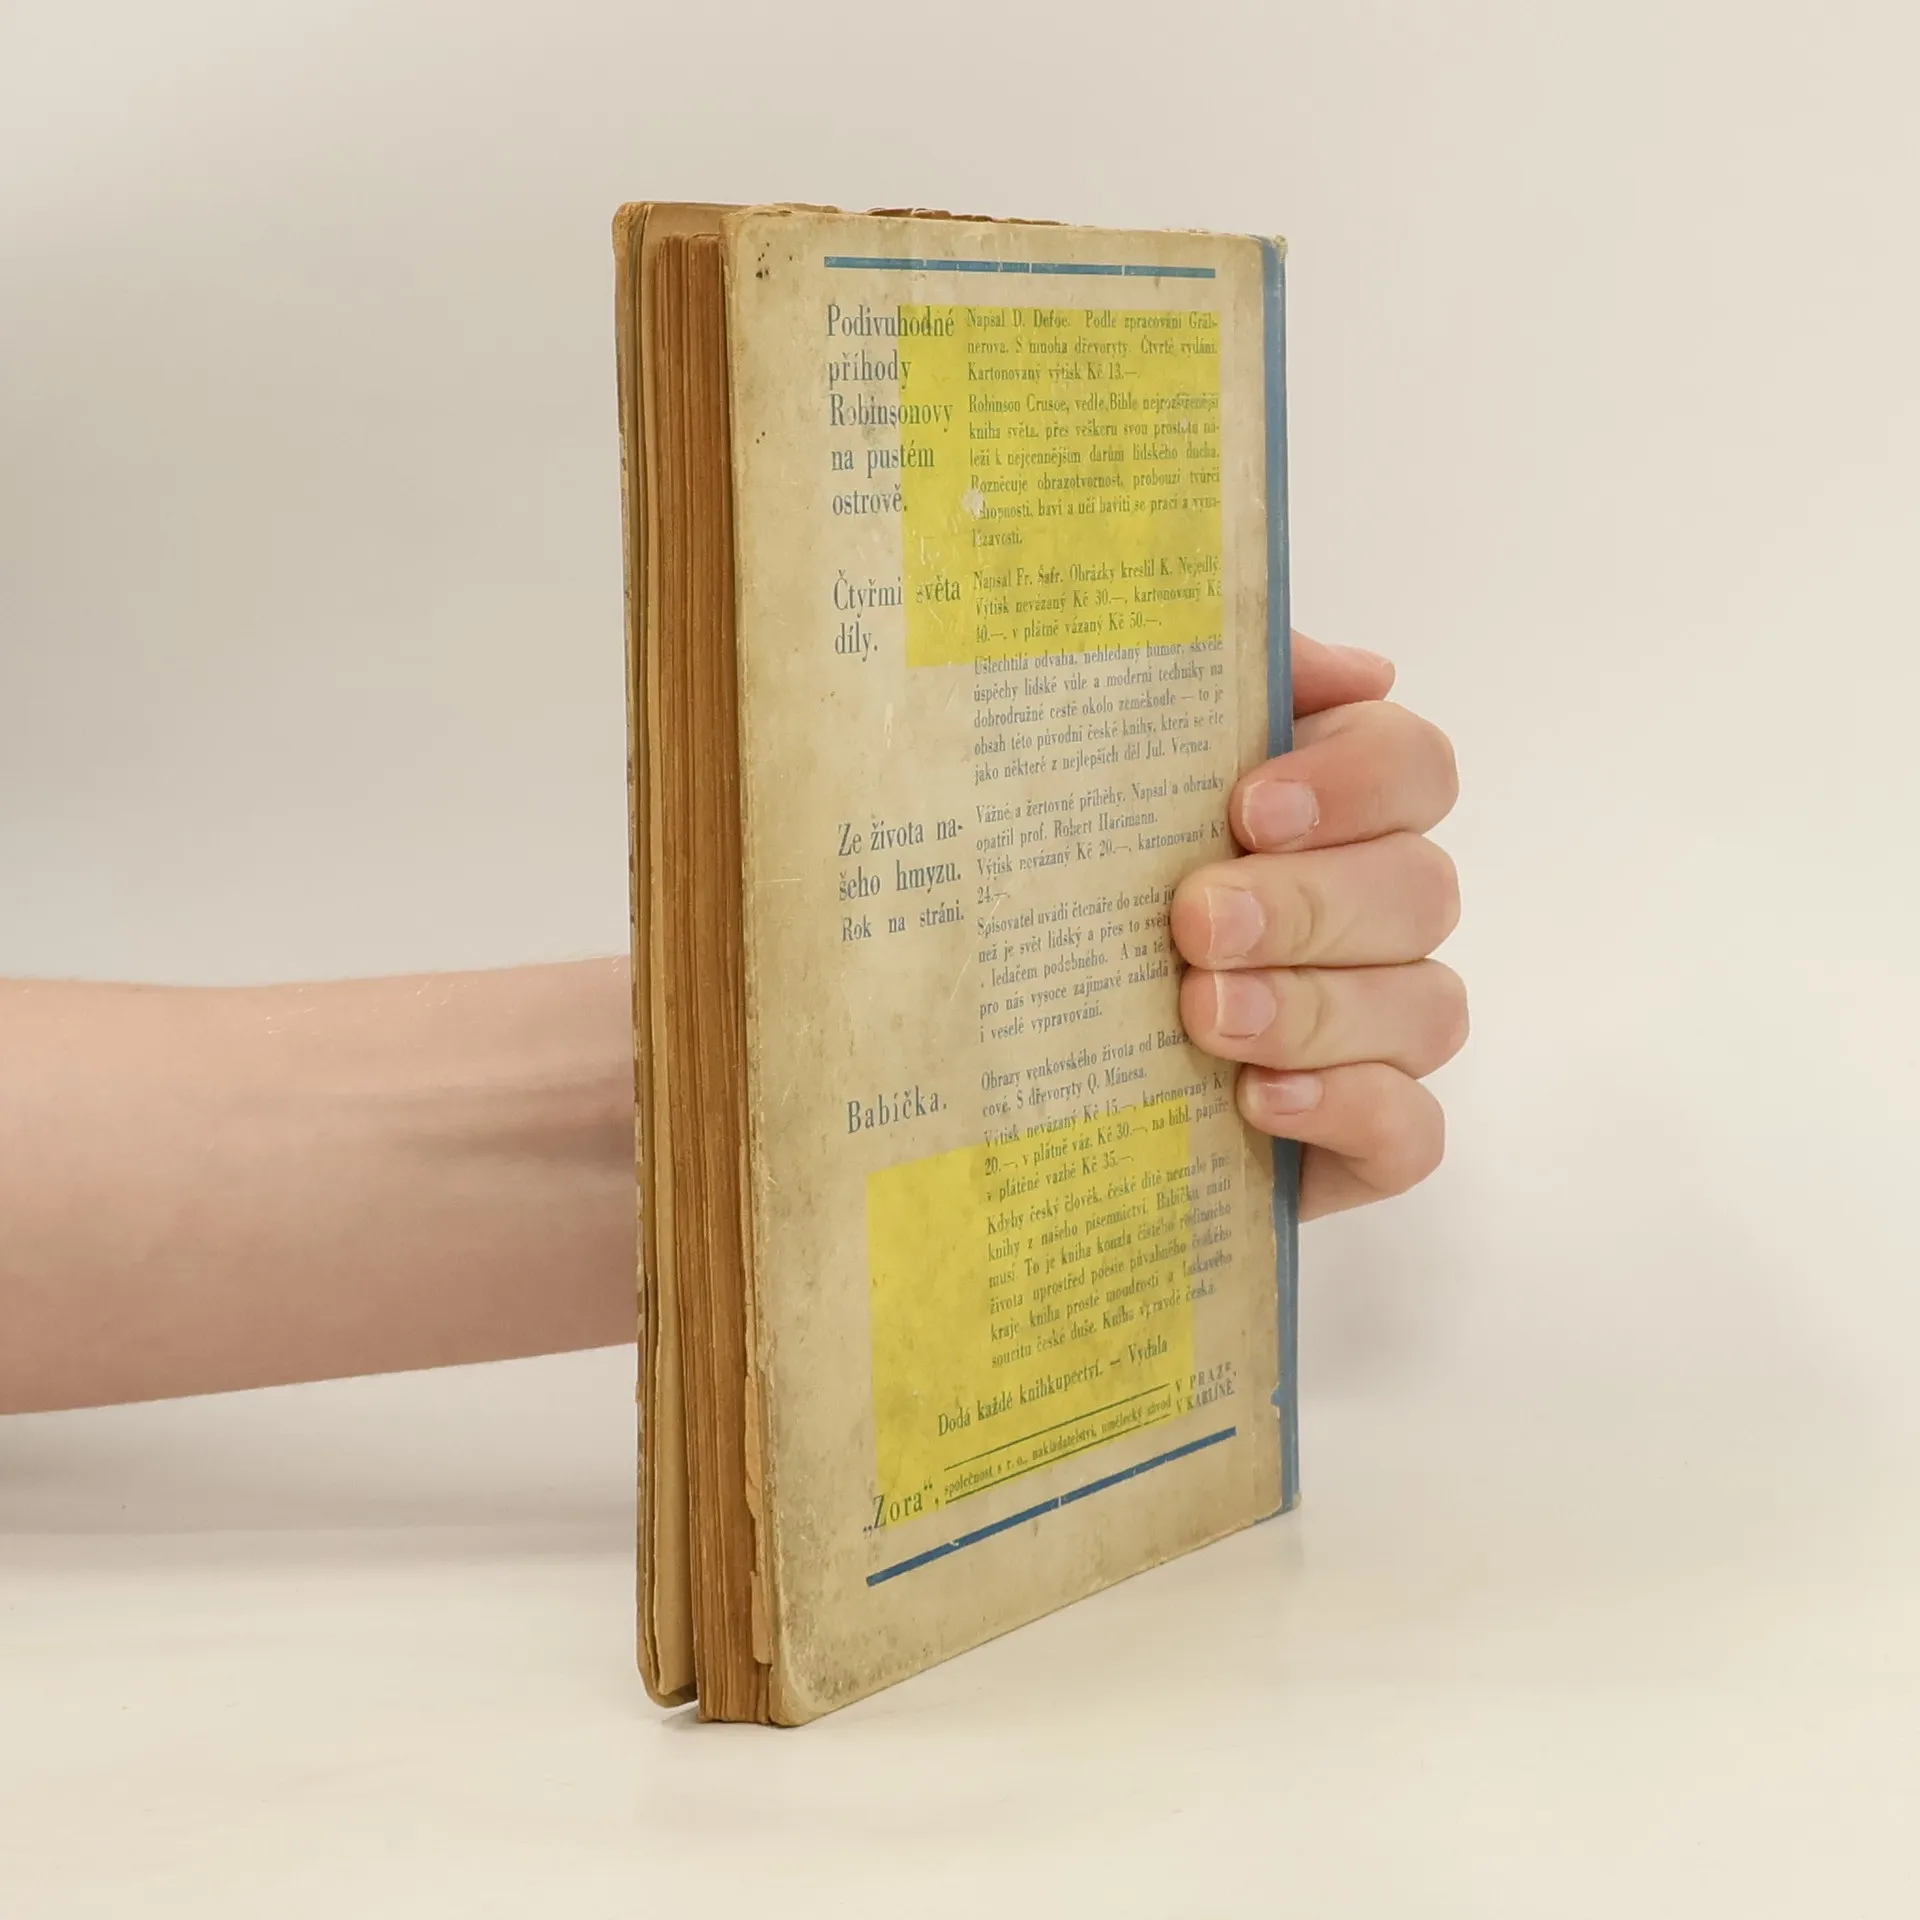 Podivuhodné
příhody
Robinsonovy
na pustém
ostrově.
Napsal D. Defoe. Podle zpracování Gräb-
nerova. S mnoha dřevoryty. Čtvrté vydání.
Kartonovaný výtisk Kč 13.—.
Robinson Crusoe, vedle Bible nejrozšířenější
kniha světa, přes veškeru svou prostotu ná-
leží k nejcennějším darům lidského ducha.
Rozněcuje obrazotvornost, probouzí tvůrčí
schopnosti, baví a učí baviti se prací a vyna-
lézavostí.
Čtyřmi světa
díly.
Napsal Fr. Šafr. Obrázky kreslil K. Nejedlý.
Výtisk nevázaný Kč 30.—, kartonovaný Kč
40.—, v plátně vázaný Kč 50.—.
Ušlechtilá odvaha, nehledaný humor, skvělé
úspěchy lidské vůle a moderní techniky na
dobrodružné cestě okolo zeměkoule — to je
obsah této původní české knihy, která se čte
jako některé z nejlepších děl Jul. Vernea.
Ze života na-
šeho hmyzu.
Rok na stráni.
Vážné a žertovné příběhy. Napsal a obrázky
opatřil prof. Robert Harmann.
Výtisk nevázaný Kč 20.—, kartonovaný Kč
24.—.
Spisovatel uvádí čtenáře do zcela
než je svět lidský a přes to
ledačem podobného. A na té
pro nás vysoce zajímavé zakládá
i veselé vypravování.
Babička.
Obrazy venkovského života od
cové. S dřevoryty Q. Mánesa.
Výtisk nevázaný Kč 15.—, kartonovaný Kč
20.—, v plátně váz. Kč 30.—, na bibl. papíře
v plátěné vazbě Kč 35.—.
Kdyby český člověk, české dítě neznalo jiné
knihy z našeho písemnictví, Babičku znáti
musí. To je kniha kouzla čistého rodinného
života uprostřed poesie půvabného českého
kraje, kniha prosté moudrosti a laskavého
soucitu české duše. Kniha vpravdě česká.
Dodá každé knihkupectví. — Vydala
„Zora“, společnost s r. o., nakladatelství, umělecký závod V PRAZE,
V KARLÍNĚ.